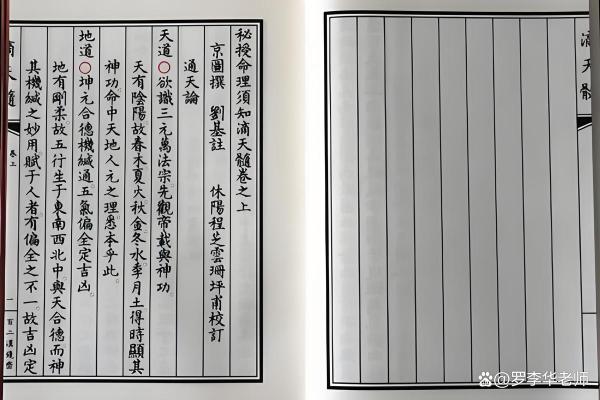 秘授命理須知滴天髓卷之上
京圖撰 劉基註 休陽程芝雲珊坪甫校訂
通天論
天道○欲識三元萬法宗先觀帝載與神功
天有陰陽故春木夏火秋金冬水季月土得時顯其
神功命中天地人元之理悉本乎此
地道○坤元合德機緘通五氣偏全定吉凶
地有剛柔故五行生于東南西北中與天合德而神
其機緘之妙用賦于人者有偏全之不一故吉凶定
滴天髓
卷上
一
百二漢鏡齋
滴天髓
@罗李华老师